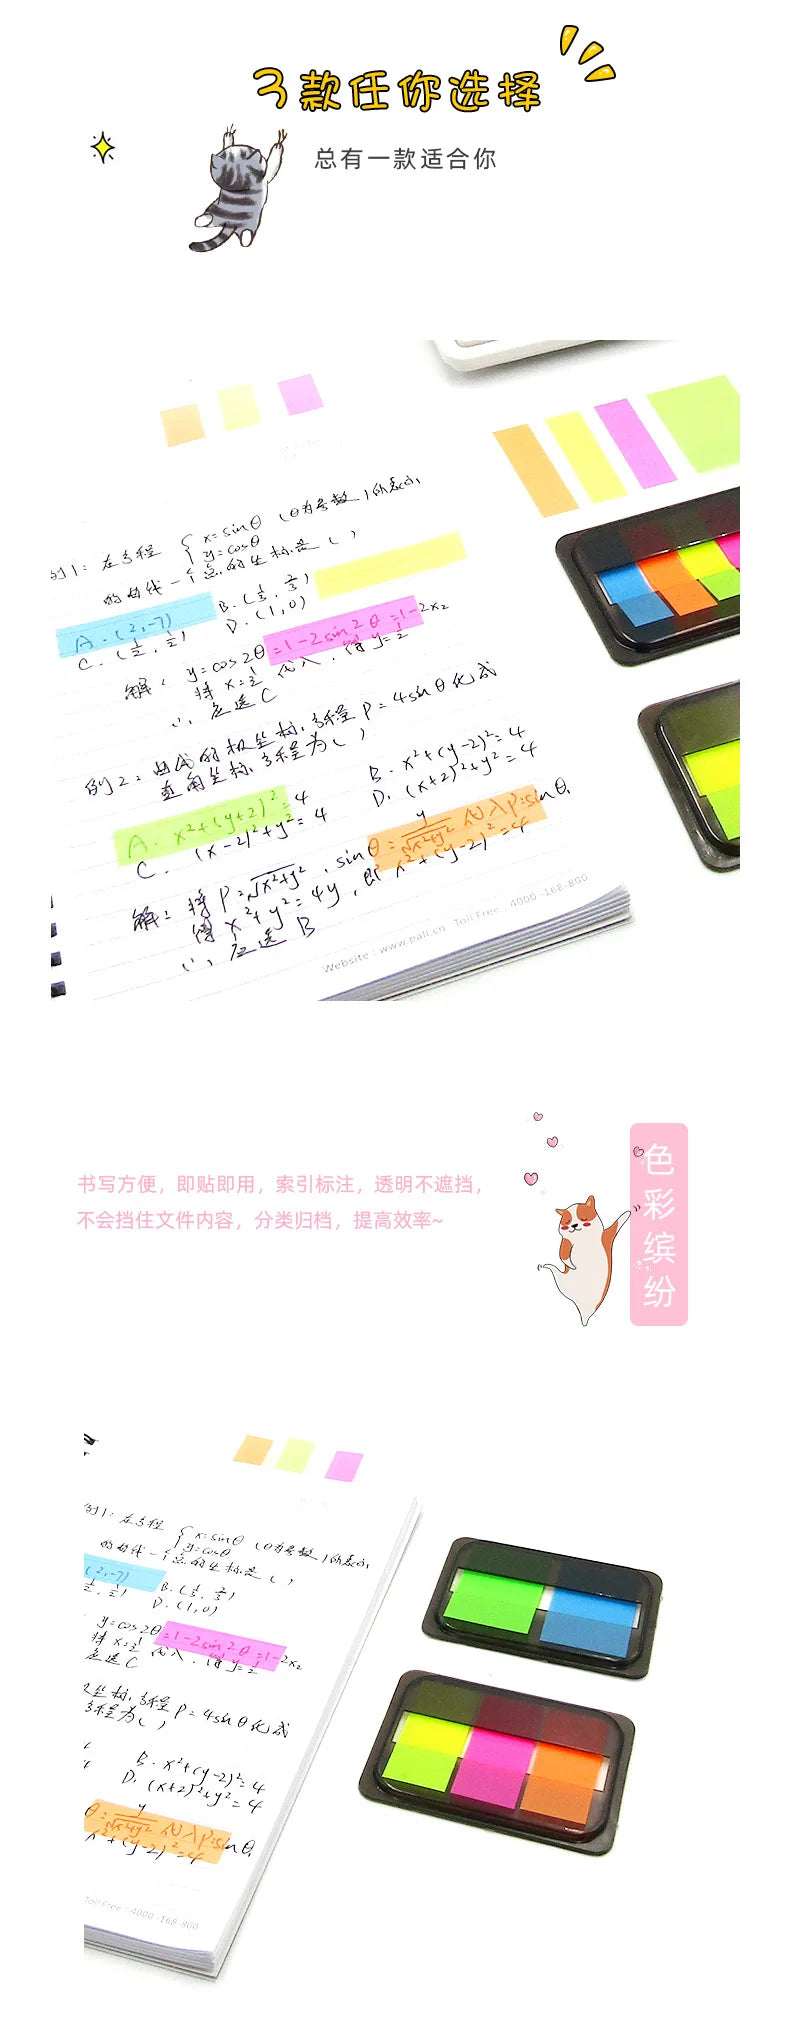 3款任你选择
总有一款适合你
例1：在方程 { x=sinθ (θ为参数)所表示
y=cosθ
的曲线一个点的坐标是( )
A.(2,-7) B.(1/3,2/3)
C.(1/2,1/2) D.(1,0)
解： y=cos2θ=1-2sin2θ=1-2x2
将x=1/2代入,得y=1/2
∴应选C
例2：曲线的极坐标方程P=4sinθ化成
直角坐标方程为( )
A.x²+(y+2)²=4 B.x²+(y-2)²=4
C.(x-2)²+y²=4 D.(x+2)²+y²=4
解：将P=√x²+y²,sinθ=y/√x²+y²代入P=sinθ,
得x²+y²=4y,即x²+(y-2)²=4
∴应选B
Website : www.pall.cn Toll Free : 4000-168-800
书写方便，即贴即用，索引标注，透明不遮挡，
不会挡住文件内容，分类归档，提高效率~
色彩缤纷
例1：在方程 { x=sinθ (θ为参数)所表示
y=cosθ
的曲线一个点的坐标是( )
(2,-7) B.(1/3,2/3)
D.(1,0)
y=cos2θ=1-2sin2θ=1-2x2
将x=1/2代入,得y=1/2
应选C
坐标方程P=4sinθ化成
方程为( )
B.x²+(y-2)²=4
D.(x+2)²+y²=4
θ=y/√x²+y²代入P=sinθ,
x²+(y-2)²=4
Toll Free : 4000-168-800